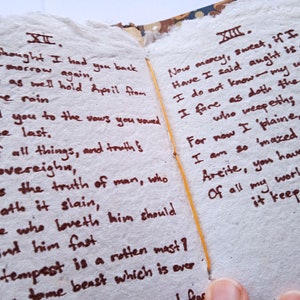 XII.
thought I had you back
-morrow again,
as well hold April from
e rain
you to the vows you vowed
e last.
all things, and truth's
overeighn,
is the truth of man, who
ath it slain,
e who loveth him should
ind him fast
tempest is a rotten mast?
some beast which is ever
XIII.
Now mercy, sweet, if I
Have I said aught is
I do not know—my w
I fare as doth the
who weepeth,
For now I plaine
I am so 'mazed
Areite, you hav
Of all my world
it keep